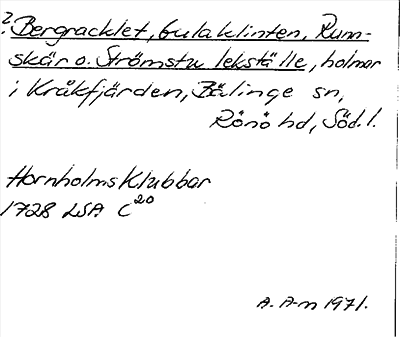 ? Bergracklet, Gulaklinten, Rum-
skär o. Strömstu lekställe, holmar
i Kråkfjärden, Bälinge sn,
Rönö hd, Söd.l.
Hornholms Klubbar
1728 LSA C 20
A. A-m 1971.